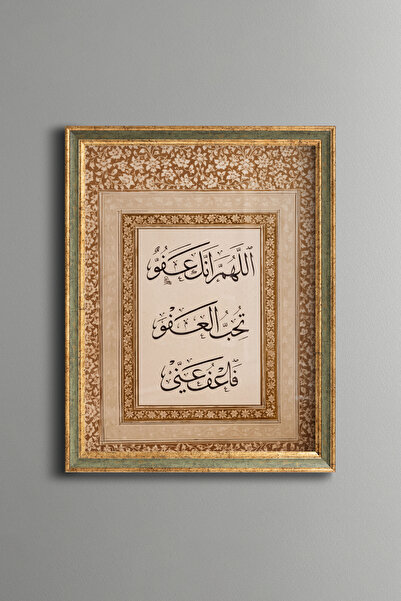 اللَّهُمَّ اِنَّكَ عَفُوٌّ
تُحِبُّ الْعَفْوَ
فَاعْفُ عَنِّي